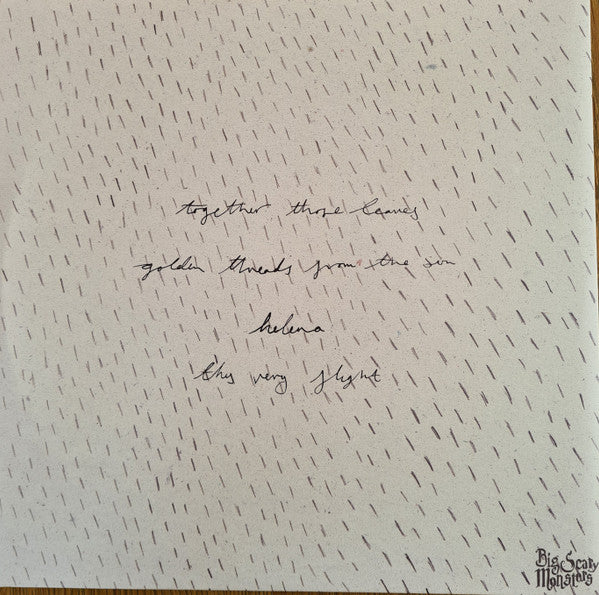 together those leaves
golden threads from the sun
helena
this very flight
Big Scary
Monsters